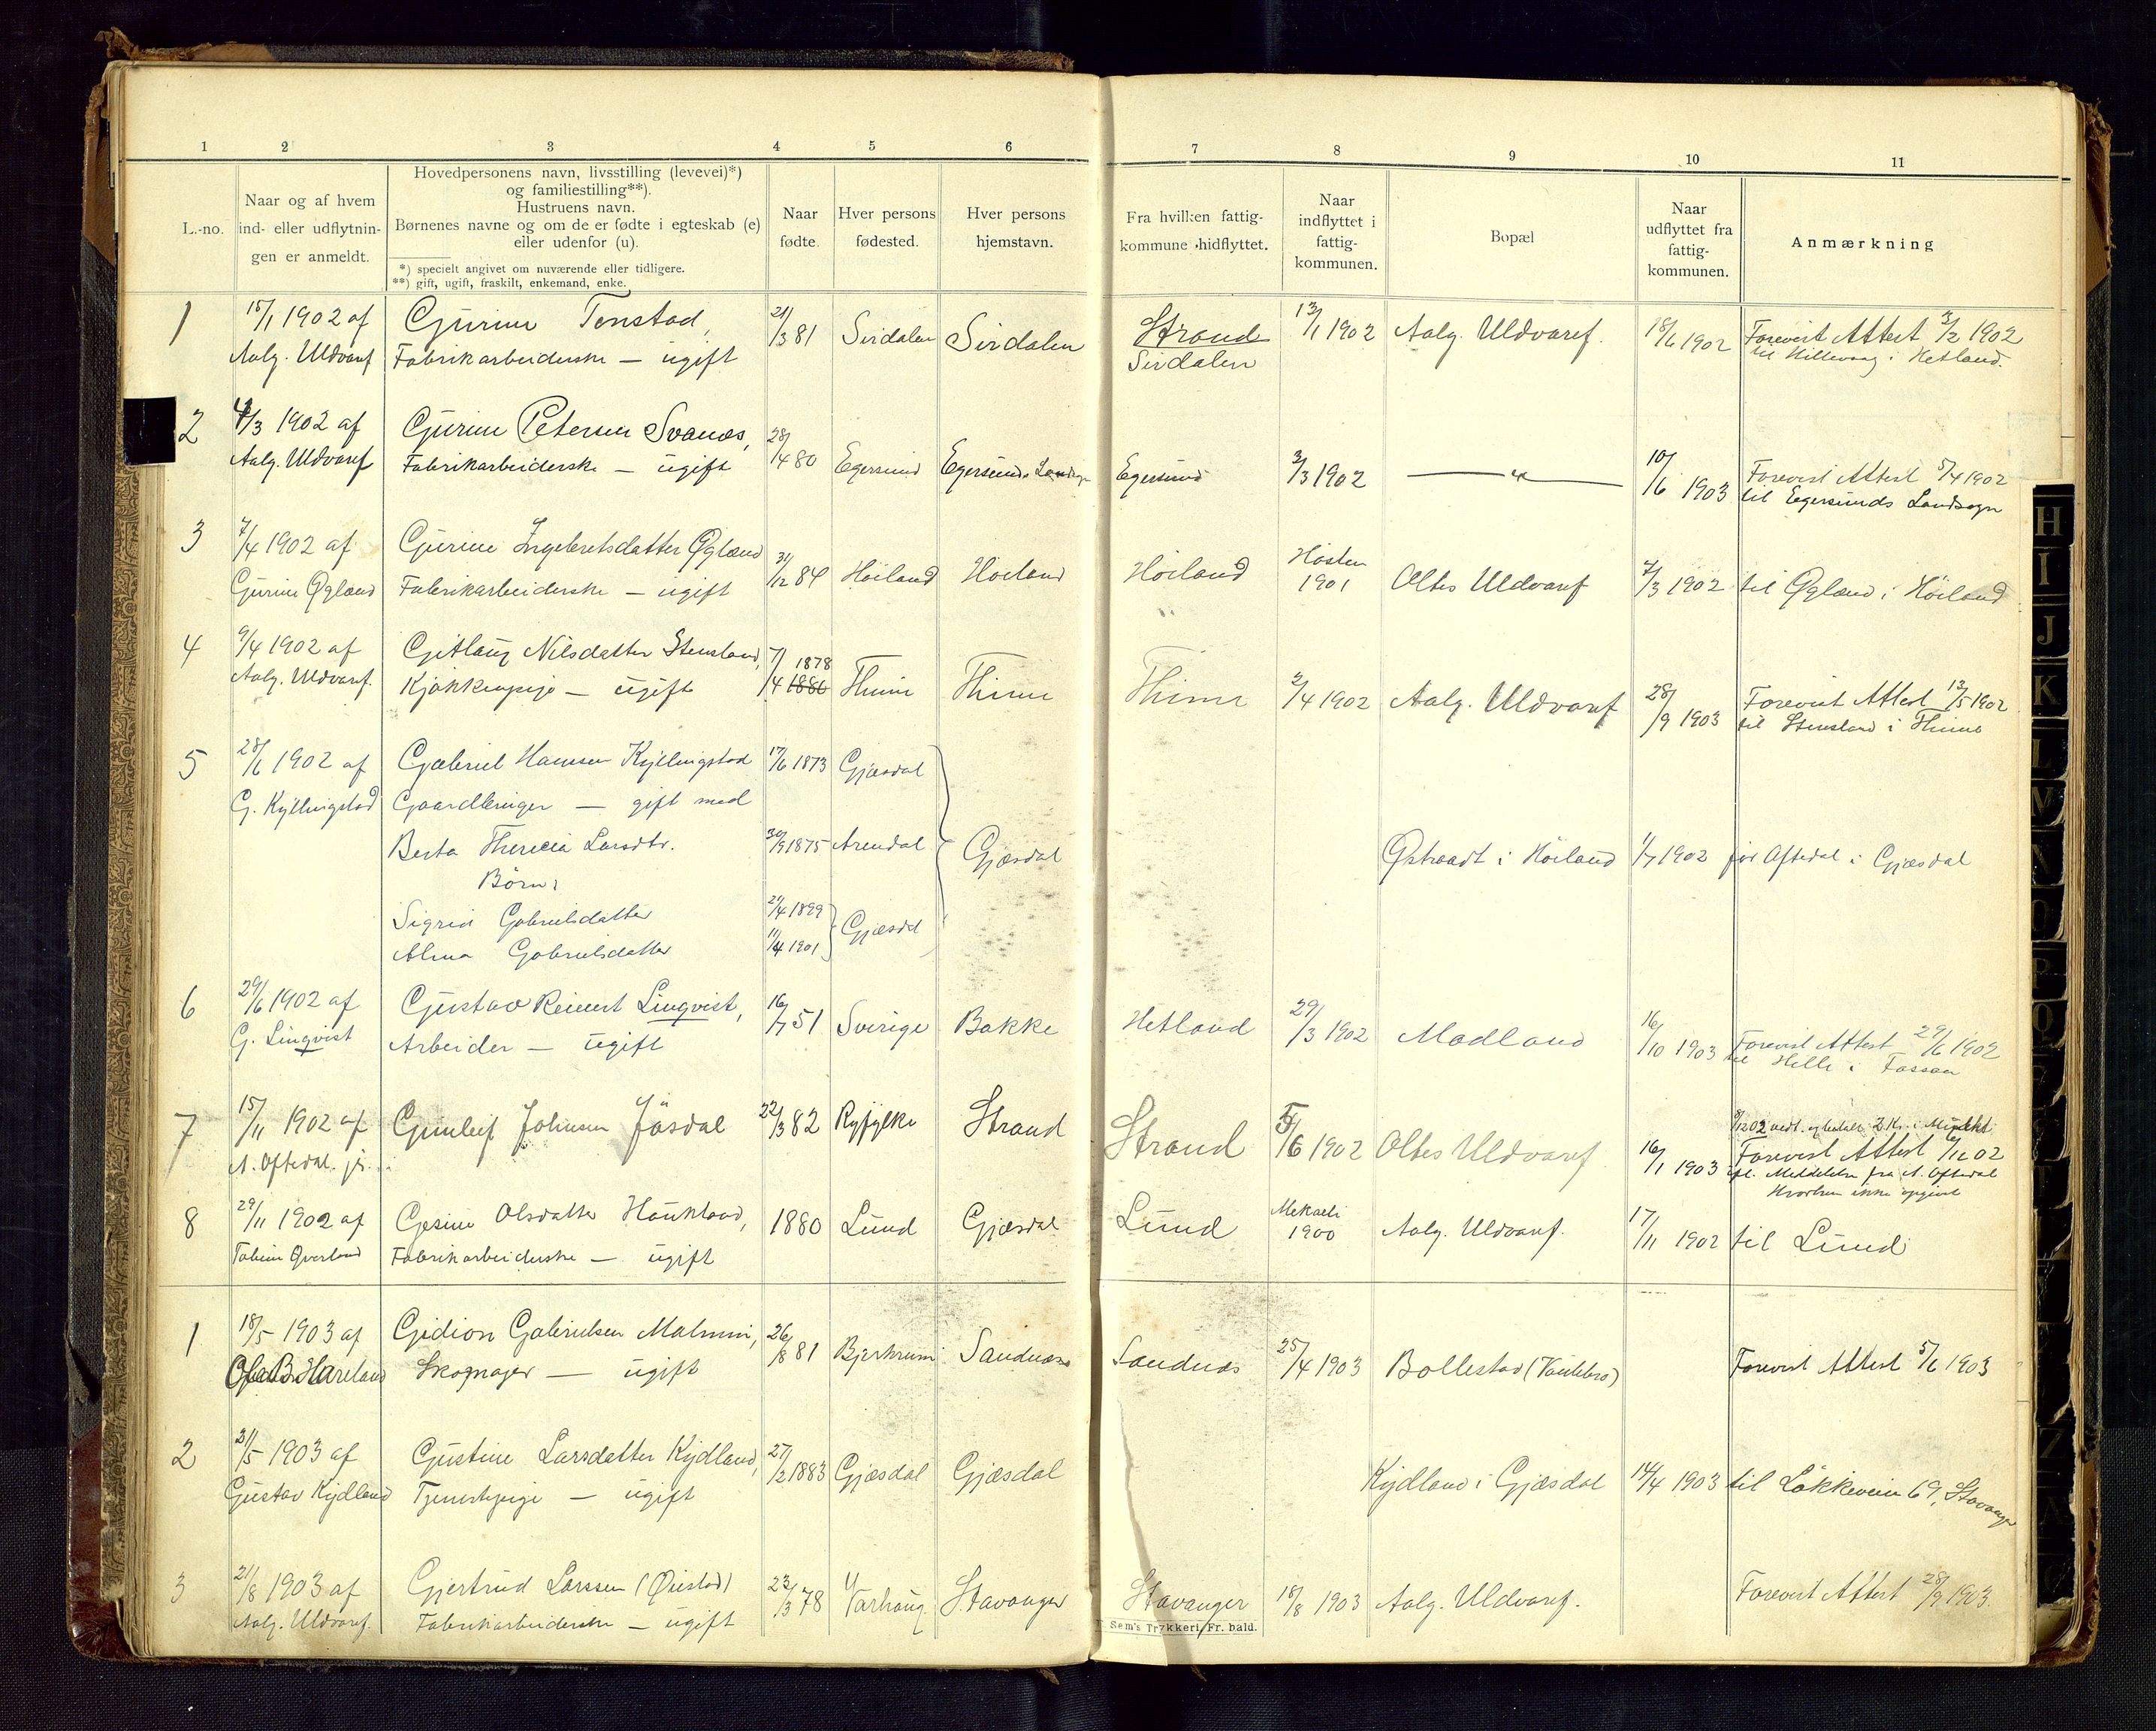 1 2 3 4 5 6 7 8 9 10 11
L.-no.
Naar og af hvem
ind- eller udflytnin-
gen er anmeldt.
Hovedpersonens navn, livsstilling (levevei)*)
og familiestilling**).
Hustruens navn.
Børnenes navne og om de er fødte i egteskab (e)
eller udenfor (u).
*) specielt angivet om nuværende eller tidligere.
**) gift, ugift, fraskilt, enkemand, enke.
Naar
fødte.
Hver persons
fødested.
Hver persons
hjemstavn.
Fra hvilken fattig-
kommune hidflyttet.
Naar
indflyttet i
fattig-
kommunen.
Bopæl
Naar
udflyttet fra
fattig-
kommunen.
Anmærkning
1 15/1 1902 af Gurine Tonstad, 21/3 81 Sirdalen Sirdalen Strand 13/1 1902 Aalg. Uldvaref. 18/6 1902 Forevist Attest 3/2 1902
Aalg. Uldvaref Fabrikarbeiderske — ugift Sirdalen til Hillevaag i Hetland.
2 4/3 1902 af Gurine Petersen Svanæs, 28/4 80 Egersund Egersunds Landsogn Egersund 3/3 1902 — " — 10/6 1903 Forevist Attest 5/4 1902
Aalg. Uldvaref Fabrikarbeiderske — ugift til Egersunds Landsogn
3 7/4 1902 af Gurine Ingebretsdatter Øglænd 31/12 84 Høiland Høiland Høiland Høsten 1901 Oltes Uldvaref 7/3 1902 til Øglænd i Høiland
Gurine Øglænd Fabrikarbeiderske — ugift
4 9/4 1902 af Gitlaug Nilsdatter Stensland, 7/4 1878 1880 Thime Thime Thime 2/4 1902 Aalg. Uldvaref 28/9 1903 Forevist Attest 13/5 1902
Aalg. Uldvaref. Kjøkkenpige — ugift til Stensland i Thime
5 28/6 1902 af Gabriel Hansen Kyllingstad 17/6 1873 Gjæsdal
G. Kyllingstad Gaardbruger — gift med
Berta Therecia Larsdtr. 30/9 1875 Arendal Gjæsdal Østraadt i Høiland 1/7 1902 før Oftedal i Gjæsdal
Børn:
Sigrid Gabrielsdatter 29/4 1899 Gjæsdal
Alma Gabrielsdatter 11/4 1901
6 29/6 1902 af Gustav Reinert Linqvist, 16/7 51 Sverige Bakke Hetland 29/3 1902 Madland 16/10 1903 Forevist Attest 29/6 1902
G. Linqvist Arbeider — ugift til Helle i Fossan
7 15/11 1902 af Gunleif Johnsen Jøsdal 22/3 82 Ryfylke Strand Strand 5/6 1902 Oltes Uldvaref 16/1 1903 Forevist Attest 6/12 02
A. Oftedal jr. Meddelelse fra A. Oftedal
Hvorhen ikke opgivet
8 29/11 1902 af Gesine Olsdatter Haukland, 1880 Lund Gjæsdal Lund Mikaeli 1900 Aalg. Uldvaref. 17/11 1902 til Lund
Fabrikarbeiderske — ugift
1 18/5 1903 af Gidion Gabrielsen Malmin, 26/8 81 Bjerkreim Sandnæs Sandnæs 25/4 1903 Bollestad Forevist Attest 5/6 1903
Ole B. Hareland Skomager — ugift
2 31/5 1903 af Gustine Larsdatter Kydland, 27/2 1883 Gjæsdal Gjæsdal Kydland i Gjæsdal 14/4 1903 til Løkkeveien 69, Stavanger
Gustav Kydland Tjenestepige — ugift
3 21/8 1903 af Gjertrud Larssen (Øiestad) 23/3 78 Varhaug Stavanger Stavanger 18/8 1903 Aalg. Uldvaref. Forevist Attest 28/9 1903.
Aalg. Uldvaref. Fabrikarbeiderske — ugift
Sem's Trykkeri, Fr. hald.
H
I
J
K
L
M
N
O
P